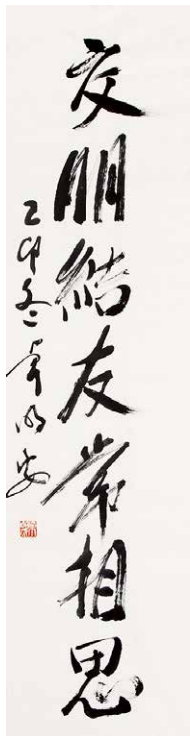 交朋結友常相思
乙卯冬